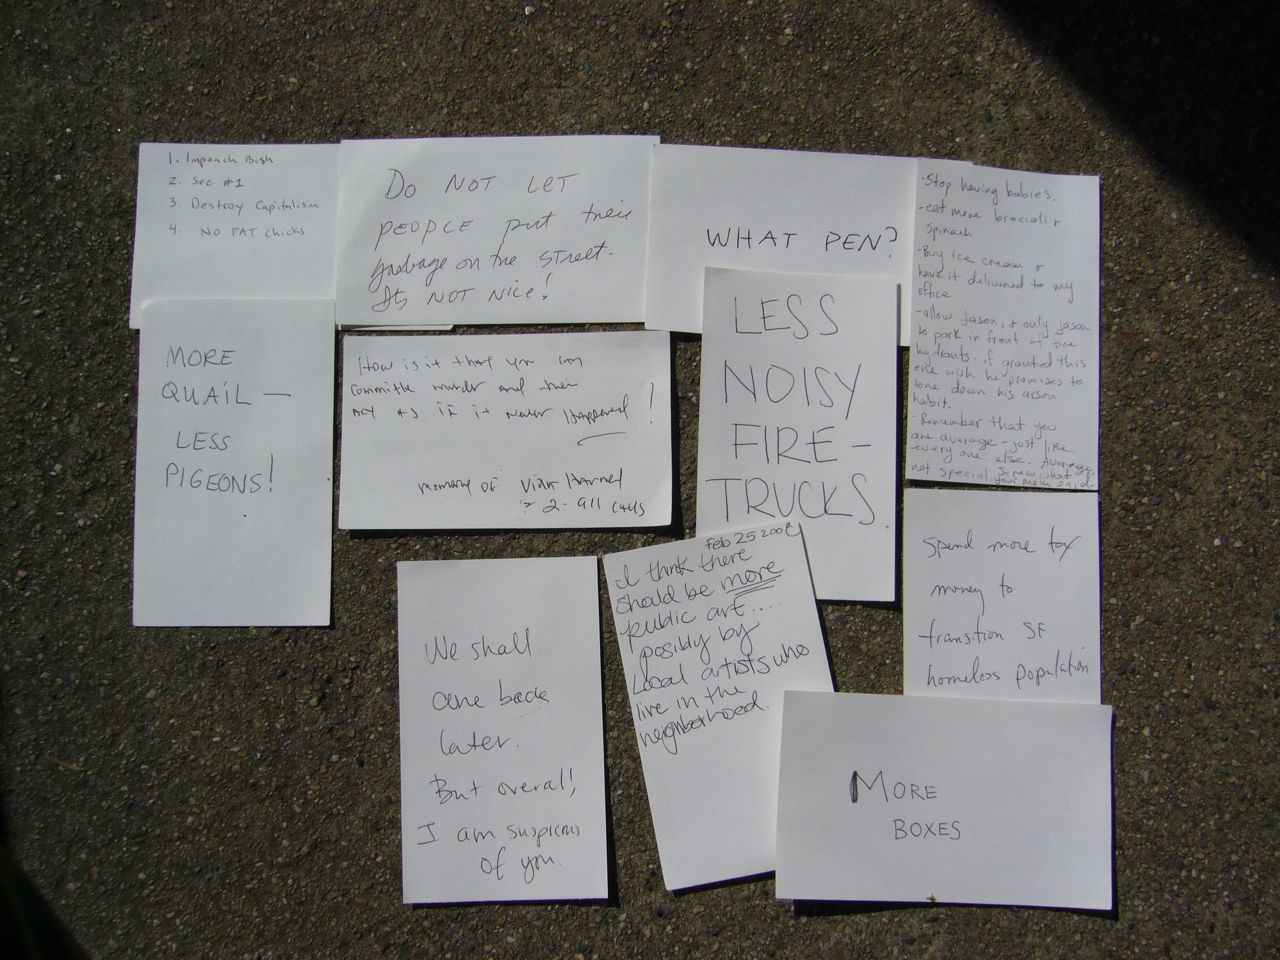 1. Impeach Bush
2. See #1
3. Destroy Capitalism
4. NO FAT chicks
DO NOT LET
PEOPLE put their
garbage on the STREET.
It's NOT NICE!
WHAT PEN?
-Stop having babies.
-eat more broccoli +
spinach
-Buy ice cream &
have it delivered to my
office
-allow Jason, & only Jason
to park in front of fire
hydrants - if granted this
one wish he promises to
tone down his arson
habit.
-Remember that you
are average - just like
every one else. Average,
not special. Screw what
your mom said.
MORE
QUAIL —
LESS
PIGEONS!
How is it that you can
committe murder and then
act as if it never Happened!
memory of
2 - 911 calls
LESS
NOISY
FIRE-
TRUCKS.
Spend more tax
money to
transition SF
homeless population
We shall
come back
later.
But overall,
I am suspicious
of you.
Feb 25 2008
I think there
should be more
public art....
posibly by
Local artists who
live in the
neighborhood.
MORE
BOXES